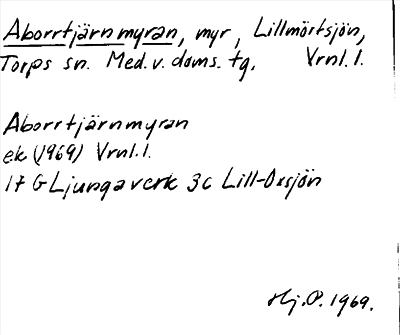 Aborrtjärnmyran, myr, Lillmörtsjön,
Torps sn. Med. v. doms. tg. Vrnl. 1.
Aborrtjärnmyran
ek (1969) Vrnl. 1.
17 G Ljungaverk 3c Lill-Oxsjön
Hj. P. 1969.